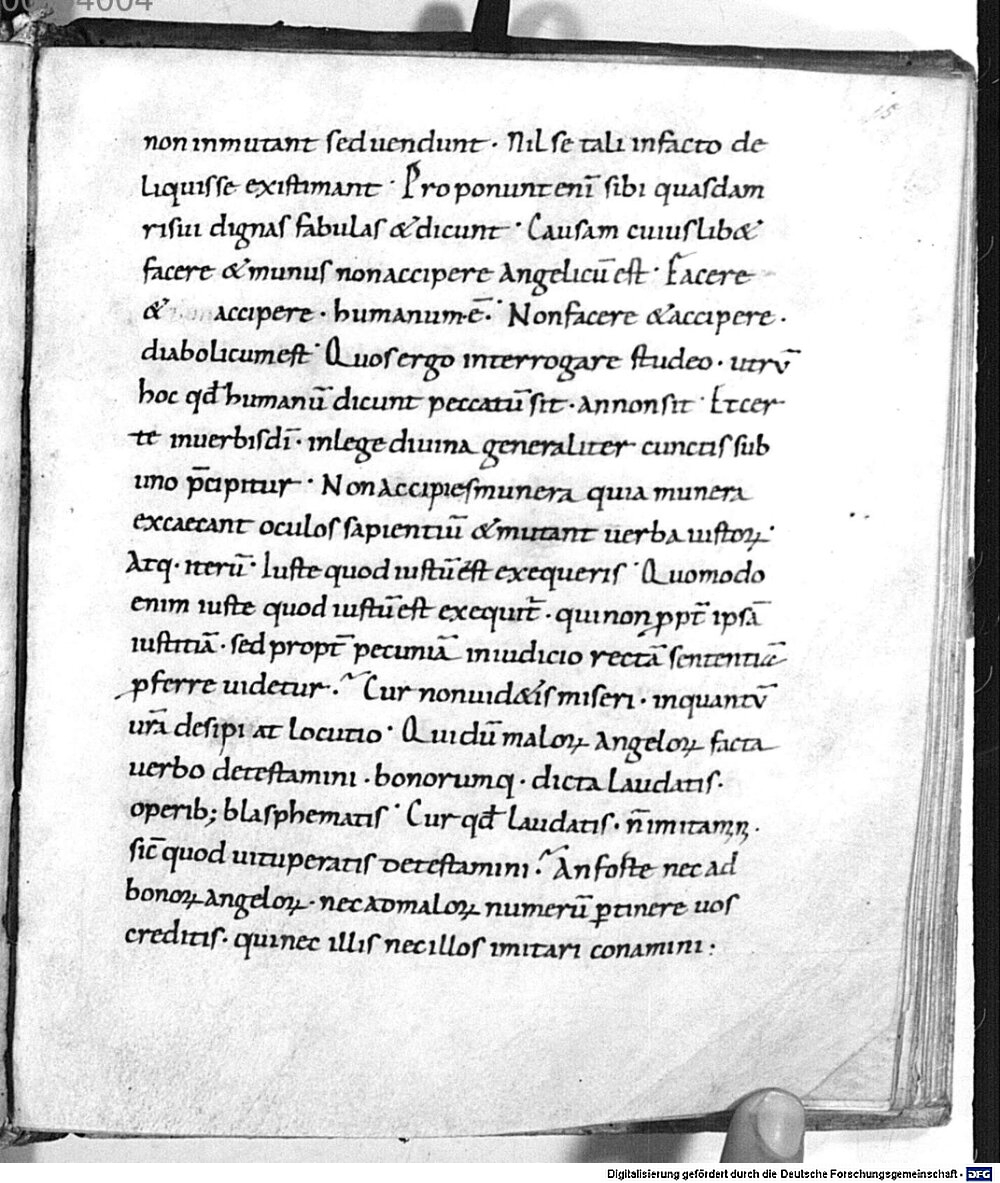 non inmutant sed uendunt · Nil se tali in facto de
liquisse existimant · Proponunt eni̅ sibi quasdam
risui dignas fabulas & dicunt · Causam cuiuslib&
facere & munus non accipere Angelicu̅ est · Facere
& accipere · humanum · e̅ · Non facere & accipere ·
diabolicum est · Quos ergo interrogare studeo · utru̅
hoc qđ humanu̅ dicunt peccatu̅ sit · an non sit · Et cer
te in uerbis di̅ · in lege diuina generaliter cunctis sub
uno p̅cipitur · Non Accipies munera quia munera
excaecant oculos sapientiu̅ & mutant uerba iustoꝝ ·
Atq · iteru̅ · Iuste quod iustu̅ est exequeris · Quomodo
enim iuste quod iustu̅ est exequit̅ · qui non ꝓpt̅ ipsa̅
iustitia̅ · sed propt̅ pecunia̅ in iudicio recta̅ sententia̅
ꝓferre uidetur · Cur non uid&is miseri · in quantu̅
ur̅a desipi at locutio · Qui du̅ maloꝝ Angeloꝝ facta
uerbo detestamini · bonorumq · dicta laudatis ·
operib; blasphematis · Cur qđ laudatis · n̅ imitamini ·
sic̅ quod uituperatis detestamini · An foste nec ad
bonoꝝ angeloꝝ · nec ad maloꝝ numeru̅ ꝑtinere uos
creditis · qui nec illis nec illos imitari conamini :
15
Digitalisierung gefördert durch die Deutsche Forschungsgemeinschaft - DFG